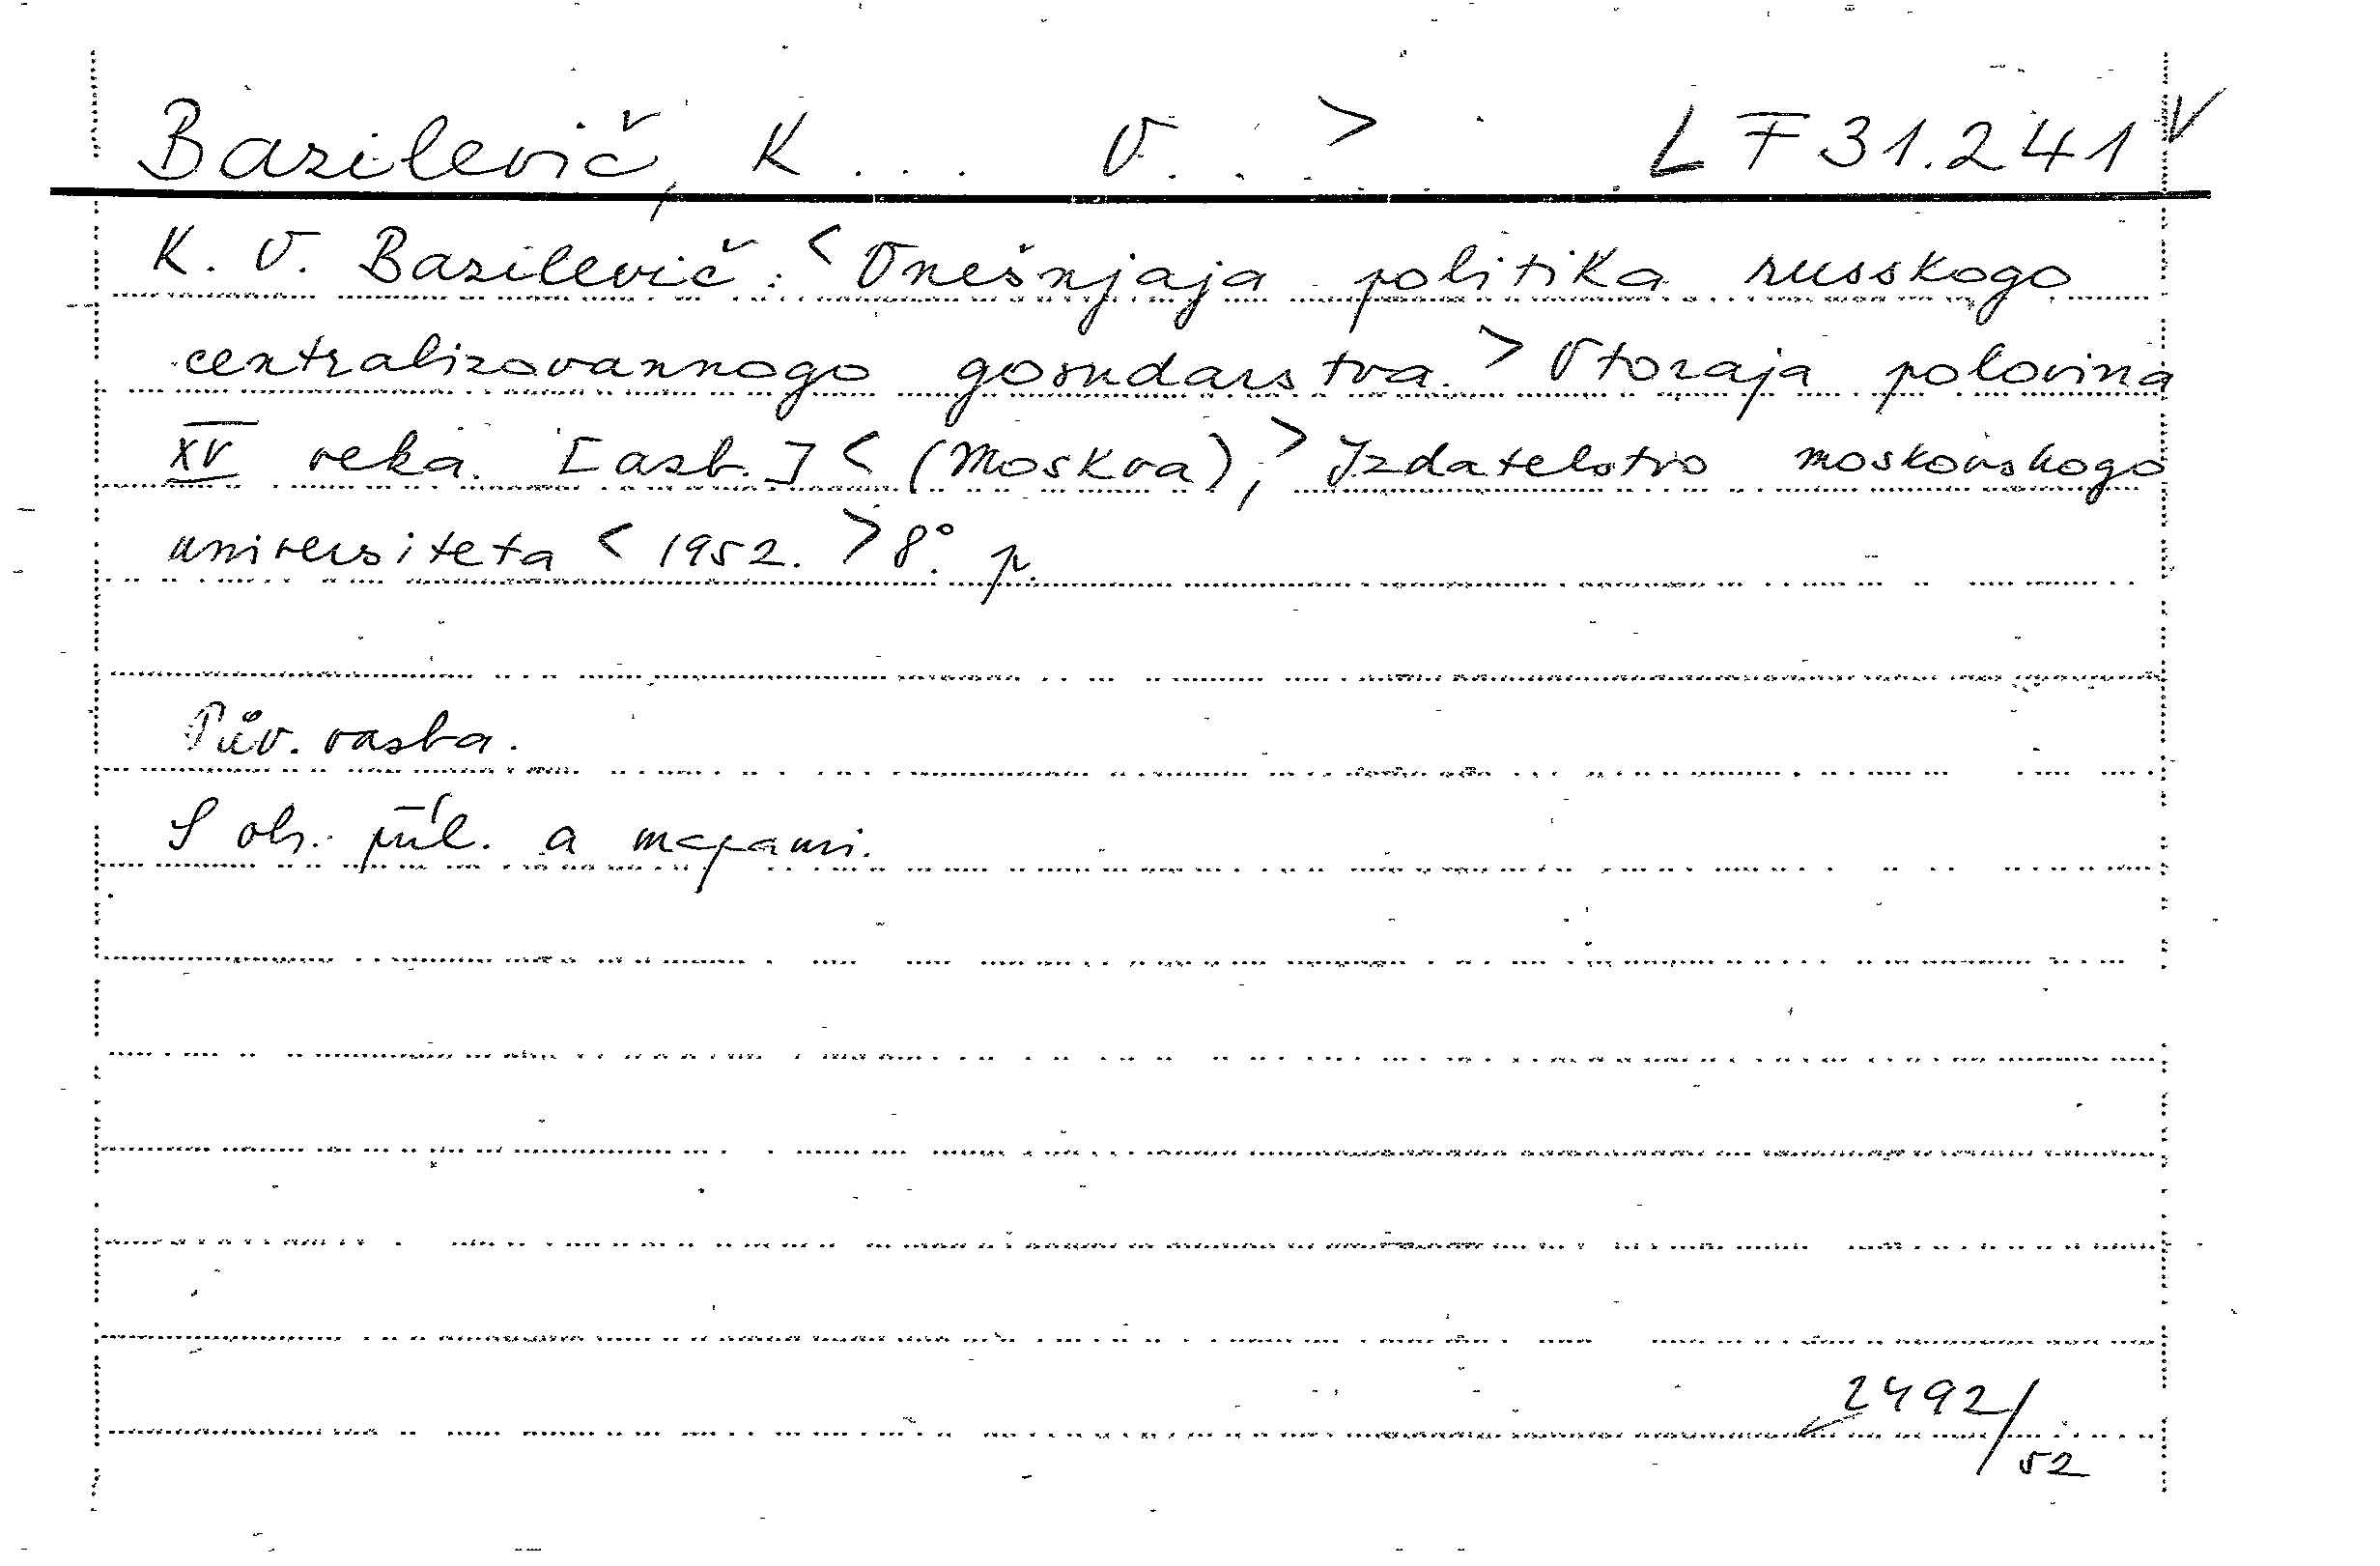 Bazilevič, K... V... > LF 31.241 V
K. V. Bazilevič: < Vnešnjaja politika russkogo
centralizovannogo gosudarstva. > Vtoraja polovina
XV veka. [azb.] < (Moskva), > Izdatelstvo moskovskogo
universiteta < 1952. > 8°. p.
Pův. vazba.
S obr. příl. a mapami.
2492/52